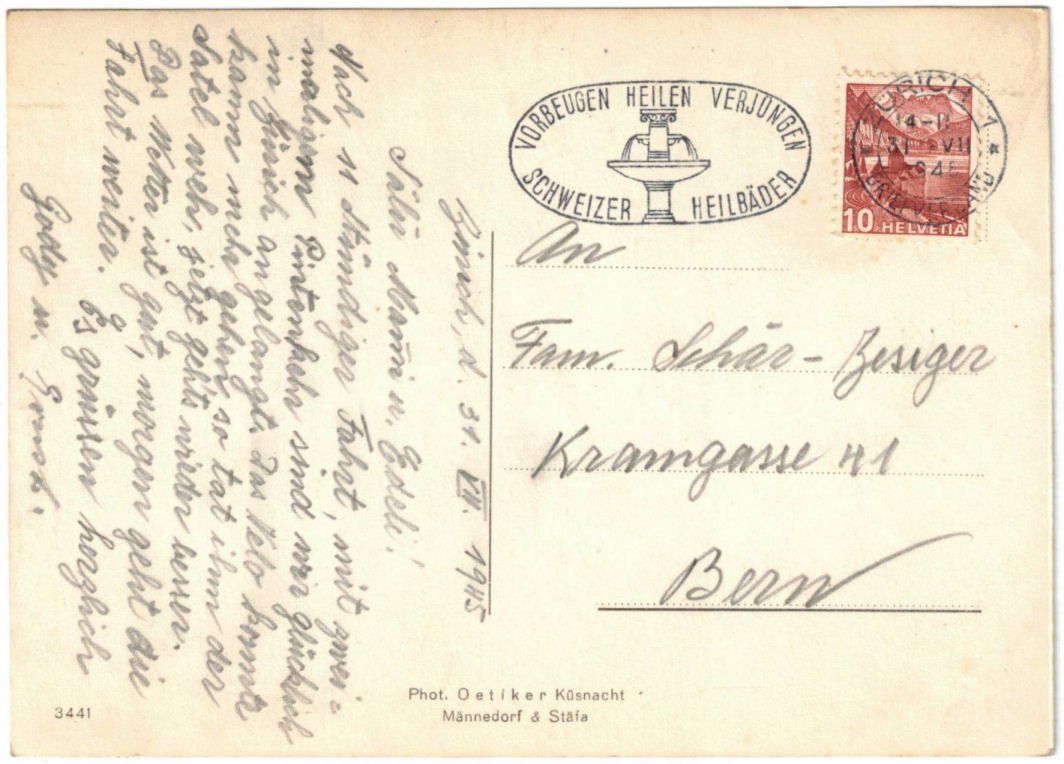 VORBEUGEN HEILEN VERJÜNGEN
SCHWEIZER HEILBÄDER
ZÜRICH 1
31 VII
BRIEFVERSAND
10 HELVETIA
An
Fam. Schär-Besiger
Kramgasse 41
Bern
Zürich, d. 31. VII. 1945
Salü Mami u. Edeli!
Nach 11 stündiger Fahrt, mit zwei=
maligem sind wir glücklich
in Zürich angelangt. Das Velo konnte
kaum mehr gehen, so tat ihm der
Satel weh, jetzt geht's wieder besser.
Das Wetter ist gut, morgen geht die
Fahrt weiter.
Es grüssen herzlich
Godty u. Ernst.
Phot. Oetiker Küsnacht
Männedorf & Stäfa
3441